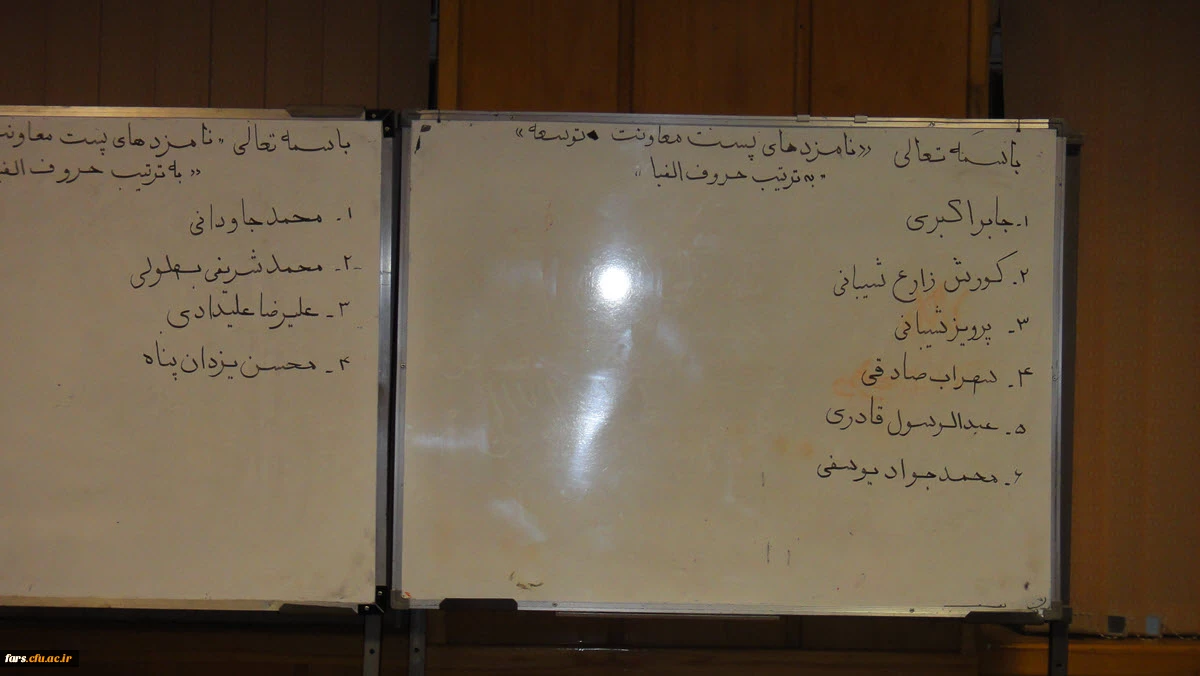 باسمه تعالی «نامزدهای پست معاونت توسعه»
"به ترتیب حروف الفبا"
۱- جابر اکبری
۲- کورش زارع شیبانی
۳- پرویز شیبانی
۴- سهراب صادقی
۵- عبدالرسول قادری
۶- محمدجواد یوسفی
باسمه تعالی "نامزدهای پست معاونت
"به ترتیب حروف الفبا
۱- محمد جاودانی
۲- محمد شریفی بهلولی
۳- علیرضا علیدادی
۴- محسن یزدان پناه
fars.cfu.ac.ir